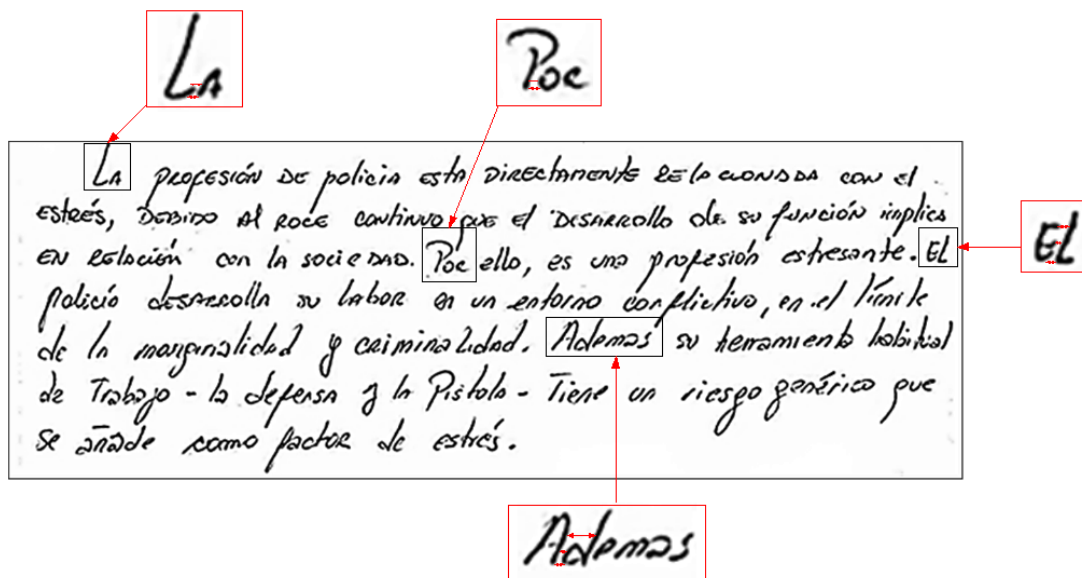 La
Por
LA PROFESIÓN DE policia esta DIRECTAMENTE RELACIONADA CON el
estrés, DEBIDO Al ROCE CONTINUO QUE El DESARROLLO de su función implica
EN RELACIÓN CON LA SOCIEDAD. Por ello, es una profesión estresante. EL
EL
policía desarrolla su labor en un entorno conflictivo, en el límite
de la marginalidad y criminalidad. Ademas su herramienta habitual
de Trabajo - la defensa y la Pistola - Tiene un riesgo genérico que
se añade como factor de estrés.
Ademas